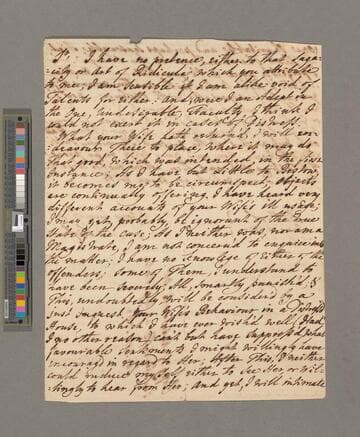 Sr. I have no pretence, either to that Saga-
city or Art of Ridicule which you attribute
to me; I am sensible I am alike void of
Talents for either. and were I an object of
the One, undesirable, Faculty, I think I
could not exert it in case of Distress.
What your Wife hath returnd, I will en-
deavour There to place, where it may do
that good, which was intended, in the first
Instance; As I have but Little to Bestow,
it becomes me to be circumspect; Objects
are continually offering. I have heard very
different accounts of our Wife's ill usage;
I may yet, probably be ignorant of the true
State of the Case. As I neither was, nor am a
Magistrate, I am not concernd to enquire into
the matter; I have no knowlege of either of the
offenders; Some of Them, I understand to
have been Severely, All Smartly punish'd, &
This, undoubtedly, will be considerd by a
just Inquest. Your Wife's Behaviour in a
House, to which I have ever wish'd well,
I no other reason, can't but have Suppress'd what
favourable Sentiments I might willingly have
encourag'd in regard to Her. After This, I neither
could induce myself either to See Her or wil-
lingly to hear from Her; and yet, I will intimate